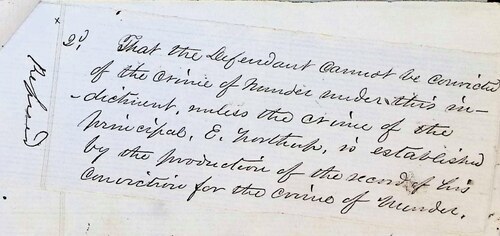 2d. That the Defendant cannot be convicted
of the crime of Murder under this in-
-dictment, unless the crime of the
principal, E. Northup, is established
by the production of the record of his
conviction for the crime of Murder.
Refused